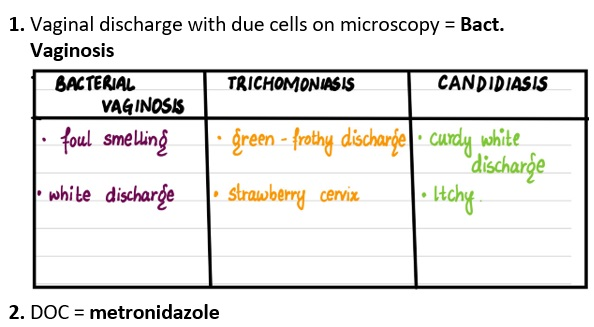 1. Vaginal discharge with due cells on microscopy = Bact.
Vaginosis
BACTERIAL
VAGINOSIS
TRICHOMONIASIS
CANDIDIASIS
• foul smelling
• green - frothy discharge
• curdy white
discharge
• white discharge
• strawberry cervix
• Itchy.
2. DOC = metronidazole